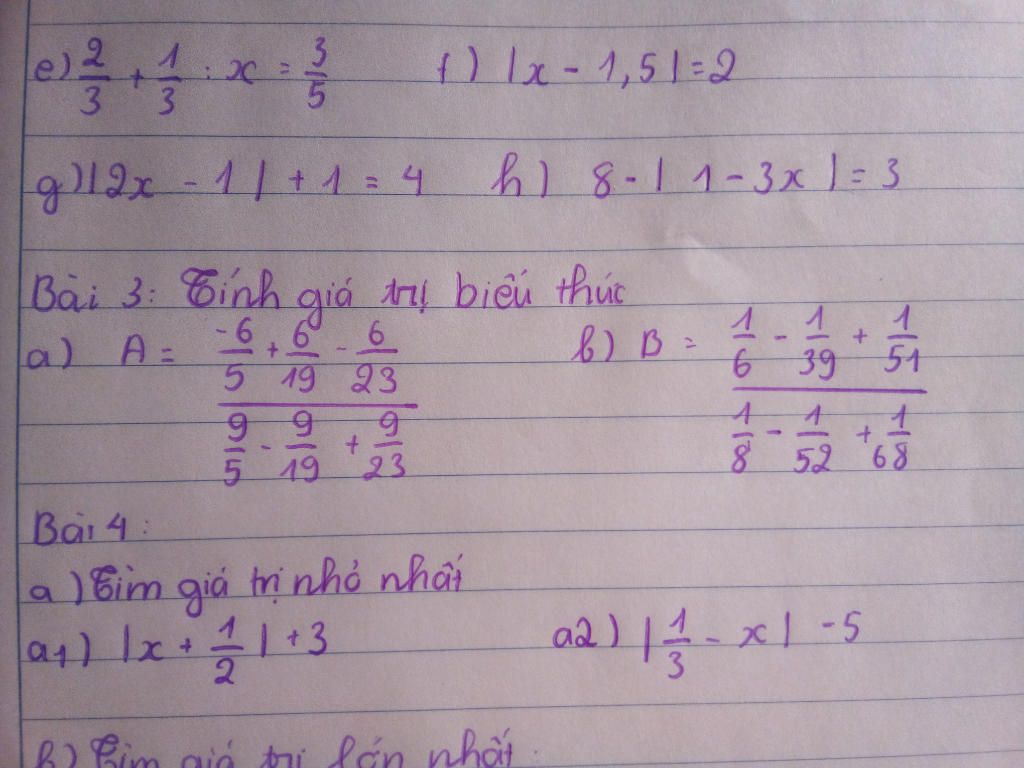 e) 2/3 + 1/3 : x = 3/5 f) |x - 1,5| = 2
g) |2x - 1| + 1 = 4 h) 8 - |1 - 3x| = 3
Bài 3: Tính giá trị biểu thức
a) A = (-6/5 + 6/19 - 6/23)/(9/5 - 9/19 + 9/23) b) B = (1/6 - 1/39 + 1/51)/(1/8 - 1/52 + 1/68)
Bài 4:
a) Tìm giá trị nhỏ nhất
a1) |x + 1/2| + 3 a2) |1/3 - x| - 5
b) Tìm giá trị lớn nhất: